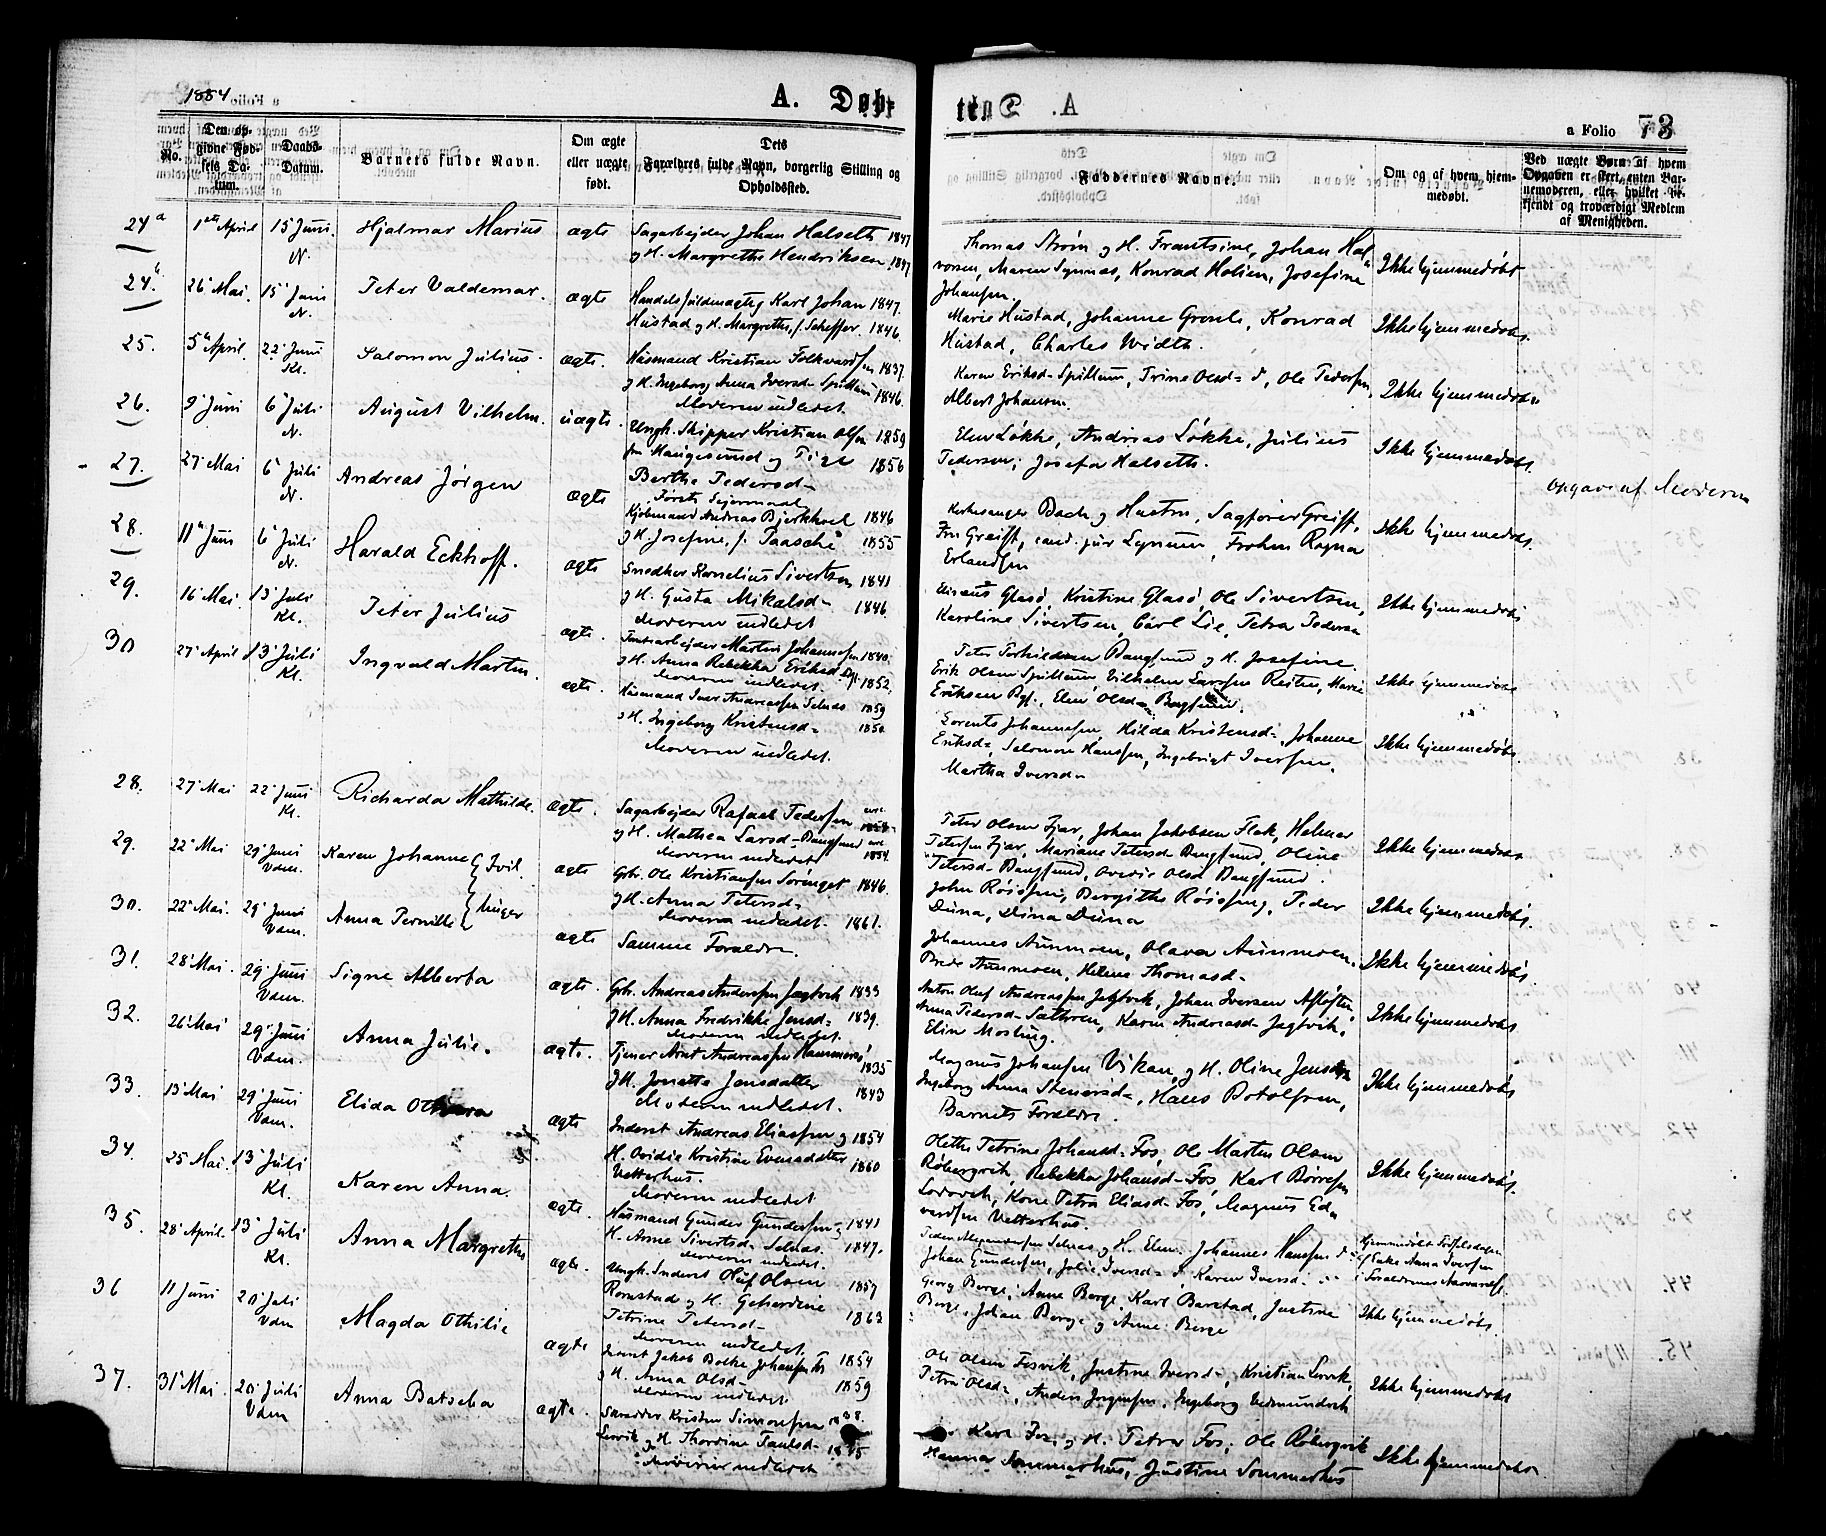 1884
A. Døb-
No.
Den op-
givne Fød-
sels Da-
tum.
Daabs-
Datum.
Barnets fulde Navn.
Om ægte
eller uægte
født.
Dets
Forældres fulde Navn, borgerlig Stilling og
Opholdssted.
a Folio 73
Faddernes Navne.
Om og af hvem hjem-
medøbt.
Ved uægte Børn: af hvem
Opgaven er skeet, enten Bar-
nemoderen, eller hvilket be-
kjendt og troværdigt Medlem
af Menigheden.
24a 1ste April 15 Juni N. Hjalmar Marius ægte Sagarbejder Johan Halseth 1847
og H. Margrethe Hendriksen 1847
Thomas Strøm og H. Frantsine, Johan Hal-
vorsen, Maren Synnes, Konrad Holien, Josefine
Johansen.
Ikke hjemmedøbt
24b 26 Mai 15 Juni N. Peter Valdemar. ægte Handelsfuldmægtig Karl Johan 1847.
Hustad og H. Margrethe, f. Scheffer. 1846.
Marie Hustad, Johanne Konrad
Hustad, Charles Width.
Ikke hjemmedøbt.
25. 5 April 22 Juni Kl. Salomon Julius. ægte. Husmand Kristian Folkvardsen 1837
og H. Ingeborg Anna Iversd- Spillum 1846.
Moderen indledet.
Karen Eriksd- Spillum, Trine Olsd- Ole Pedersen,
Albert Johansen.
Ikke hjemmedøbt
26. 9 Juni 6 Juli N. August Vilhelm. uægte. Ungk. Skipper Kristian Olsen 1859
fra Haugesund og Pige 1856
Berthe Pedersd-
Elen Løkke, Andreas Løkke, Julius
Pedersen, Josefa Halseth.
Ikke hjemmedøbt.
Opgave af Moderen
27. 27 Mai 6 Juli N. Andreas Jørgen ægte
Kjøbmand Andreas 1846
og H. Josefine, f. Paasche 1855
Kirkesanger Bach og Hustru, Sagfører Greiff,
Fru Greiff, cand. jur Lynum, Frøken Ragna
Erlandsen
Ikke hjemmedøbt.
28. 11 Juni 6 Juli N. Harald Eckhoff. ægte Snedker Kornelius Sivertsen 1841
og H. Gusta Mikalsd- 1846.
Moderen indledet
Elisæus Glasø, Kristine Glasø, Ole Sivertsen,
Karoline Sivertsen, Carl Lie, Petra Pedersen
Ikke hjemmedøbt
29. 16 Mai. 13 Juli Kl. Peter Julius ægte. Martin Johannesen 1840
og H. Anna Rebekka Eriksd 1852
Moderen indledet.
Peter Bangsund og H. Josefine.
Erik Olsen Spillum Vilhelm Larssen Marie
Eriksen Elen Olsd- Bangsund.
Ikke hjemmedøbt
30 27 April 13 Juli Kl. Ingvald Martin. ægte. Husmand Iver Andreassen Selnæs 1859
og H. Ingeborg Kristensd- 1850
Moderen indledet.
Lorents Johannesen, Hilda Kristensd-, Johanne
Eriksd-, Salomon Hanssen, Ingebrigt Iversen,
Martha Iversd-
Ikke hjemmedøbt.
28. 27 Mai 22 Juni Kl. Richarda Mathilde. ægte. Sagarbejder Rafael Pedersen
og H. Mathea Larsd- Bangsund 1854.
Moderen indledet
Peter Olsen Fjær, Johan Jakobsen Flak, Helmer
Petersen Fjær, Mariane Petersd- Bangsund, Oline
Petersd- Bangsund, Ovedie Olsd Bangsund.
Ikke hjemmedøbt
29. 22 Mai 29 Juni Vdm. Karen Johanne Tvil- ægte Grb. Ole Kristiansen 1846.
og H. Anna Petersd-
Moderen indledet. 1861.
John Røisøs, Bergithe Peder
Duna, Dina Duna
Ikke hjemmedøbt.
30. 22 Mai. 29 Juni Vdm. Anna Pernille linger ægte Samme Forældre.
Johannes Aunmoen, Olava Aunmoen,
Aunmoen, Helene Thomasd-
Ikke hjemmedøbt
31. 28 Mai. 29 Juni Vdm. Signe Alberta ægte. Grb. Andreas Andersen Jagtvik 1833
og H. Anna Fredrikke Jensd- 1839.
Moderen indledet.
Anton Oluf Andreassen Jagtvik, Johan Iversen Afløften,
Anna Pedersd- Sæthren, Karen Andreasd- Jagtvik,
Elin Moslung.
Ikke hjemmedøbt.
32. 26 Mai 29 Juni Vdm. Anna Julie. ægte. Tjener Arnt Andreassen Hammersø 1835
og H. Jonetta Jensdatter 1843
Moderen indledet.
Magnus Johansen Vikan og H. Oline Jensd
Ingeborg Anna Stenersd-, Hans Botolfsen,
Barnets Forældre.
Ikke hjemmedøbt
33. 13 Mai 29 Juni Vdm. Elida ægte Inderst Andreas Eliassen og 1854
H. Ovidie Kristine Evensdatter 1860
Vetterhus.
Moderen indledet
Olethe Petrine Johansd- Fos, Ole Martin Olsen
Røbergvik, Rebekka Johansd- Fos Karl Børresen
Lodovik, Kone Petra Eliasd- Fos, Magnus Ed-
vardsen Vetterhus.
Ikke hjemmedøbt.
34. 25 Mai. 13 Juli Kl. Karen Anna. ægte. Husmand Gunder Gundersen og 1841
H. Arne Sivertsd- Selnæs. 1847.
Moderen indledet.
Peder Selnæs og H. Elen. Johannes Hanssen
Johan Gundersen, Julie Iversd- Karen Iversd-
Hjemmedøbt Fødselsdagen
af Enke Anna Iversen
i Forældrenes Nærværelse.
35. 28 April. 13 Juli Kl. Anna Margrethe ægte. Ungk. Inderst Oluf Olsen 1857
Romstad og H. Gehardine 1862
Petrine Petersd-
Moderen indledet.
Georg Borge, Anne Borge, Karl Barstad, Justine
Borge, Johan Borge og Anne Berge
Ikke hjemmedøbt.
36 11 Juni 20 Juli Vdm Magda Othilie ægte Inderst Jakob Bolke Johansen 1854
og H. Anna Olsd- 1859
Moderen indledet
Ole Olsen Fosvik, Justine Iversd-, Kristian Lervik,
Petra Olsd-, Anders Jørgensen, Ingeborg
Ikke hjemmedøbt
37. 31 Mai 20 Juli Vdm Anna Batseba ægte. Skrædder Kristen Simonsen
Lervik og H. Thordine Paulsd-
Moderen indledet
Karl Fos og H. Petra Fos, Ole Røbergvik
Hanna Sommerhus, Justine Sommerhus
Ikke hjemmedøbt